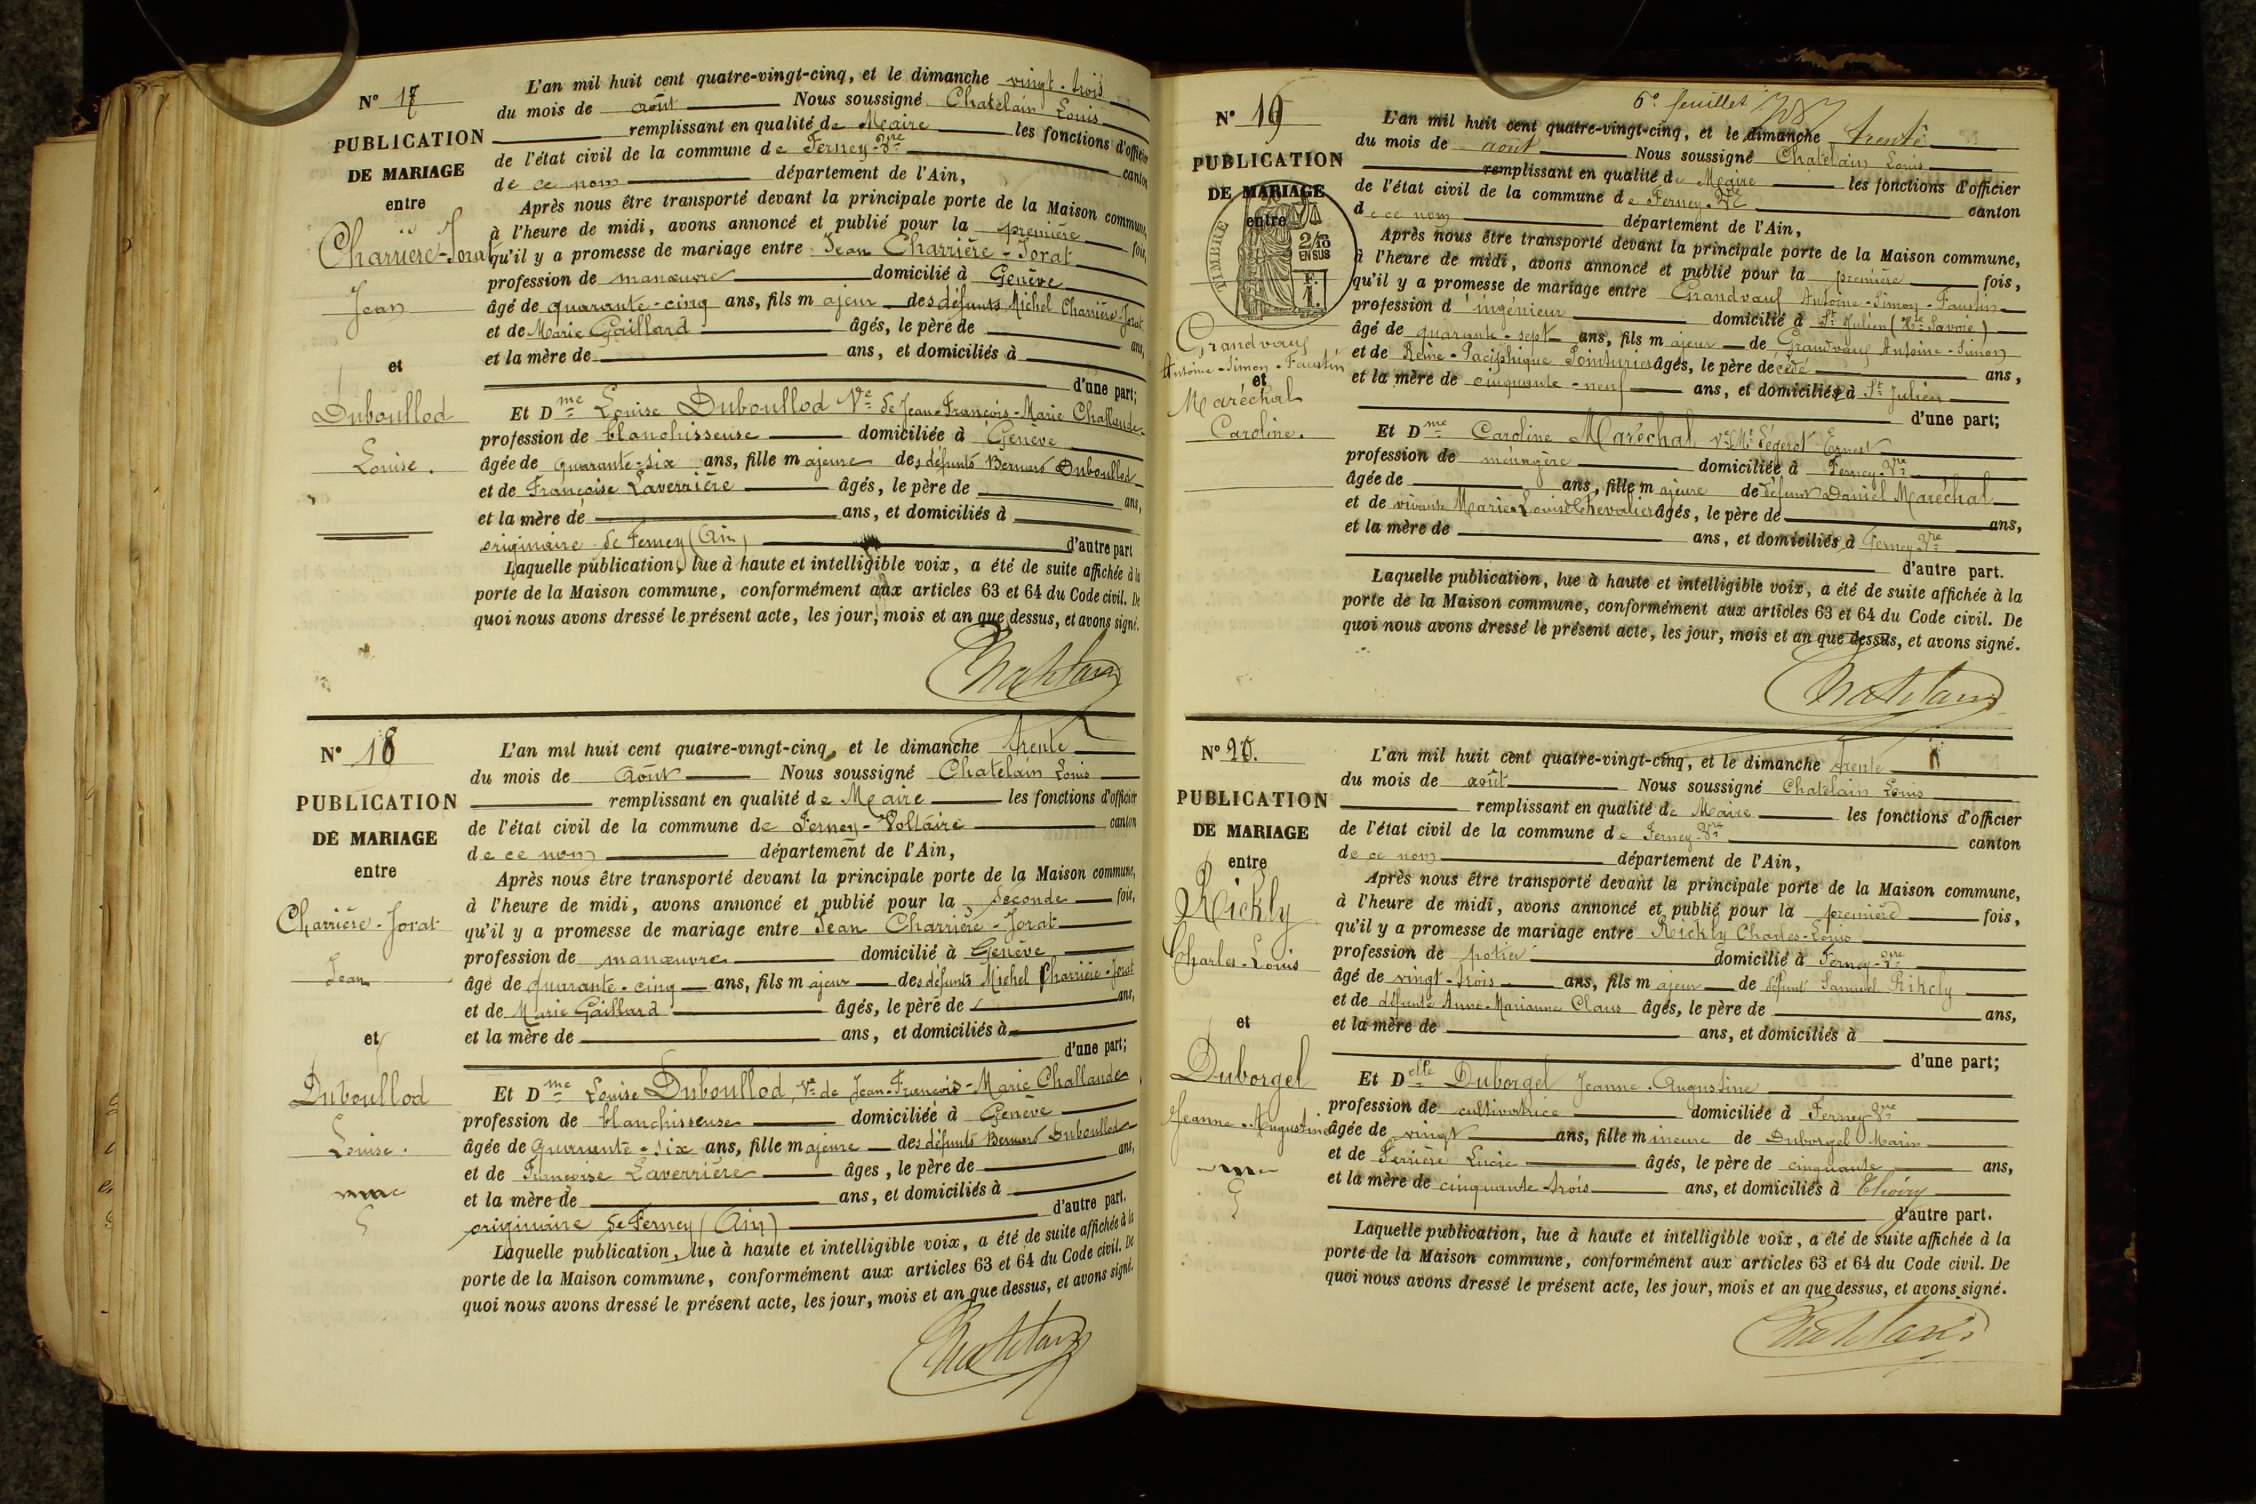 N° 17
PUBLICATION
DE MARIAGE
entre
Charrière-Jorat
Jean
et
Duboullod
Louise.
L'an mil huit cent quatre-vingt-cinq, et le dimanche vingt-trois
du mois de août Nous soussigné Chatelain Louis
remplissant en qualité de Maire les fonctions d'officier
de l'état civil de la commune de Ferney-Vre canton
de ce nom département de l'Ain,
Après nous être transporté devant la principale porte de la Maison commune,
à l'heure de midi, avons annoncé et publié pour la première fois,
qu'il y a promesse de mariage entre Jean Charrière-Jorat
profession de manœuvre domicilié à Genève
âgé de quarante-cinq ans, fils majeur des défunts Michel Charrière-Jorat
et de Marie Gaillard âgés, le père de ans,
et la mère de ans, et domiciliés à
d'une part;
Et Dme Louise Duboullod Ve de Jean-François-Marie Challande
profession de blanchisseuse domiciliée à Genève
âgée de quarante-six ans, fille majeure des défunts Bernard Duboullod
et de Françoise Laverrière âgés, le père de ans,
et la mère de ans, et domiciliés à
originaire de Ferney (Ain) d'autre part
Laquelle publication, lue à haute et intelligible voix, a été de suite affichée à la
porte de la Maison commune, conformément aux articles 63 et 64 du Code civil. De
quoi nous avons dressé le présent acte, les jour, mois et an que dessus, et avons signé.
Chatelain
N° 18
PUBLICATION
DE MARIAGE
entre
Charrière-Jorat
Jean
et
Duboullod
Louise.
L'an mil huit cent quatre-vingt-cinq, et le dimanche trente
du mois de Août Nous soussigné Chatelain Louis
remplissant en qualité de Maire les fonctions d'officier
de l'état civil de la commune de Ferney-Voltaire canton
de ce nom département de l'Ain,
Après nous être transporté devant la principale porte de la Maison commune,
à l'heure de midi, avons annoncé et publié pour la seconde fois,
qu'il y a promesse de mariage entre Jean Charrière-Jorat
profession de manœuvre domicilié à Genève
âgé de quarante-cinq ans, fils majeur des défunts Michel Charrière-Jorat
et de Marie Gaillard âgés, le père de ans,
et la mère de ans, et domiciliés à
d'une part;
Et Dme Louise Duboullod, Ve de Jean-François-Marie Challande
profession de blanchisseuse domiciliée à Genève
âgée de quarante-six ans, fille majeure des défunts Bernard Duboullod
et de Françoise Laverrière âges, le père de ans,
et la mère de ans, et domiciliés à
originaire de Ferney (Ain) d'autre part.
Laquelle publication, lue à haute et intelligible voix, a été de suite affichée à la
porte de la Maison commune, conformément aux articles 63 et 64 du Code civil. De
quoi nous avons dressé le présent acte, les jour, mois et an que dessus, et avons signé.
Chatelain
6e feuillet
N° 19
PUBLICATION
DE MARIAGE
entre
TIMBRE
2/10
EN SUS
F.
1.
Grandvaux
Antoine-Simon-Faustin
et
Maréchal
Caroline.
L'an mil huit cent quatre-vingt-cinq, et le dimanche trente
du mois de août Nous soussigné Chatelain Louis
remplissant en qualité de Maire les fonctions d'officier
de l'état civil de la commune de Ferney-Vre canton
de ce nom département de l'Ain,
Après nous être transporté devant la principale porte de la Maison commune,
à l'heure de midi, avons annoncé et publié pour la première fois,
qu'il y a promesse de mariage entre Grandvaux Antoine-Simon-Faustin
profession d'ingénieur domicilié à St Julien (Hte Savoie)
âgé de quarante-sept ans, fils majeur de Grandvaux Antoine-Simon
et de Reine-Paciphique Pointurier âgés, le père décédé ans,
et la mère de cinquante-neuf ans, et domiciliée à St Julien
d'une part;
Et Dme Caroline Maréchal Ve Mr Légerot Ernest
profession de ménagère domiciliée à Ferney-Vre
âgée de ans, fille majeure de défunt Daniel Maréchal
et de vivante Marie-Louise Chevalier âgés, le père de ans,
et la mère de ans, et domiciliés à Ferney-Vre
d'autre part.
Laquelle publication, lue à haute et intelligible voix, a été de suite affichée à la
porte de la Maison commune, conformément aux articles 63 et 64 du Code civil. De
quoi nous avons dressé le présent acte, les jour, mois et an que dessus, et avons signé.
Chatelain
N° 20.
PUBLICATION
DE MARIAGE
entre
Rickly
Charles-Louis
et
Duborgel
Jeanne-Augustine
L'an mil huit cent quatre-vingt-cinq, et le dimanche trente
du mois de août Nous soussigné Chatelain Louis
remplissant en qualité de Maire les fonctions d'officier
de l'état civil de la commune de Ferney-Vre canton
de ce nom département de l'Ain,
Après nous être transporté devant la principale porte de la Maison commune,
à l'heure de midi, avons annoncé et publié pour la première fois,
qu'il y a promesse de mariage entre Rickly Charles-Louis
profession de potier domicilié à Ferney-Vre
âgé de vingt-trois ans, fils majeur de défunt Samuel Rikcly
et de défunte Anne-Marianne Claus âgés, le père de ans,
et la mère de ans, et domiciliés à
d'une part;
Et Delle Duborgel Jeanne-Augustine
profession de cultivatrice domiciliée à Ferney Vre
âgée de vingt ans, fille mineure de Duborgel Marin
et de Ferrière Lucie âgés, le père de cinquante ans,
et la mère de cinquante trois ans, et domiciliés à Thoiry
d'autre part.
Laquelle publication, lue à haute et intelligible voix, a été de suite affichée à la
porte de la Maison commune, conformément aux articles 63 et 64 du Code civil. De
quoi nous avons dressé le présent acte, les jour, mois et an que dessus, et avons signé.
Chatelain